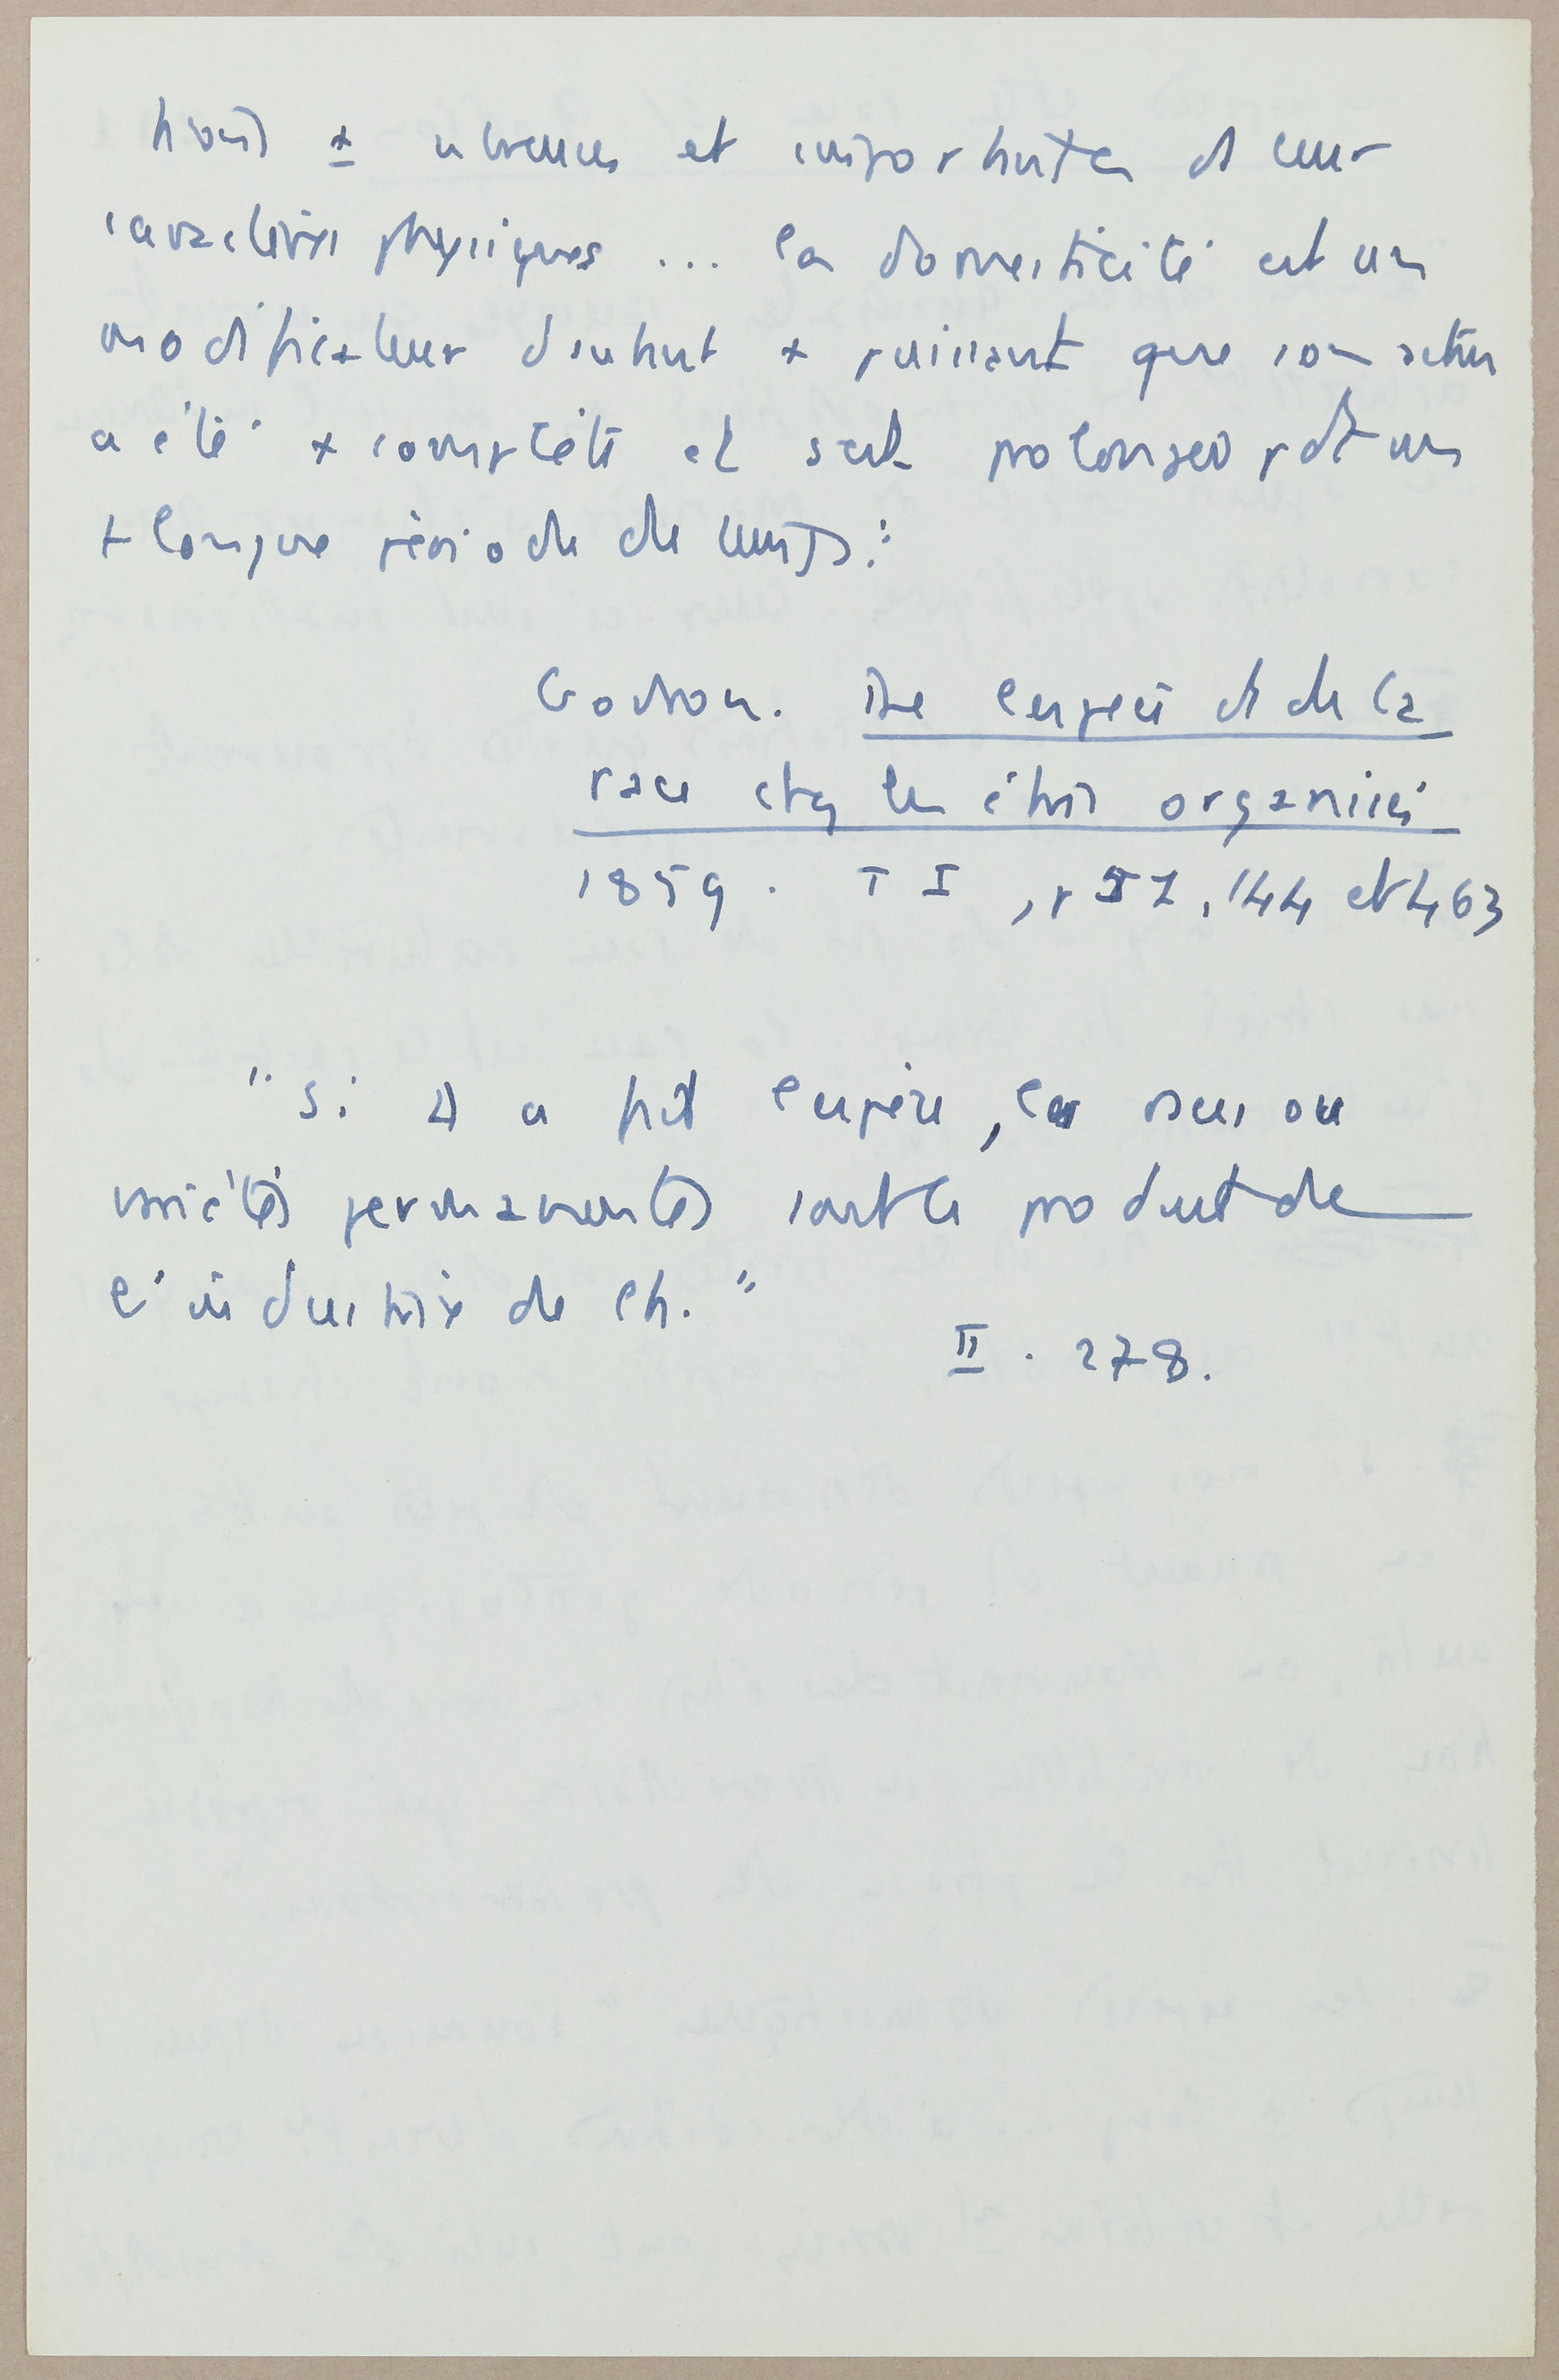 tions ± nbreuses et importantes ds leur
caractères physiques ... la domesticité est un
modificateur d'autant + puissant que son action
a été + complète et s'est prolongée pdt une
+ longue période de temps."
Godron. De l'espèce et de la
race chez les êtres organisés
1859. T I, p 52, 144 et 463
"Si D a fait l'espèce, les races ou
variétés permanentes sont le produit de
l'industrie de l'h."
II. 278.